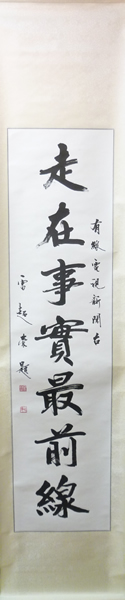 有線電視新聞台
走在事實最前線
雷超榮題